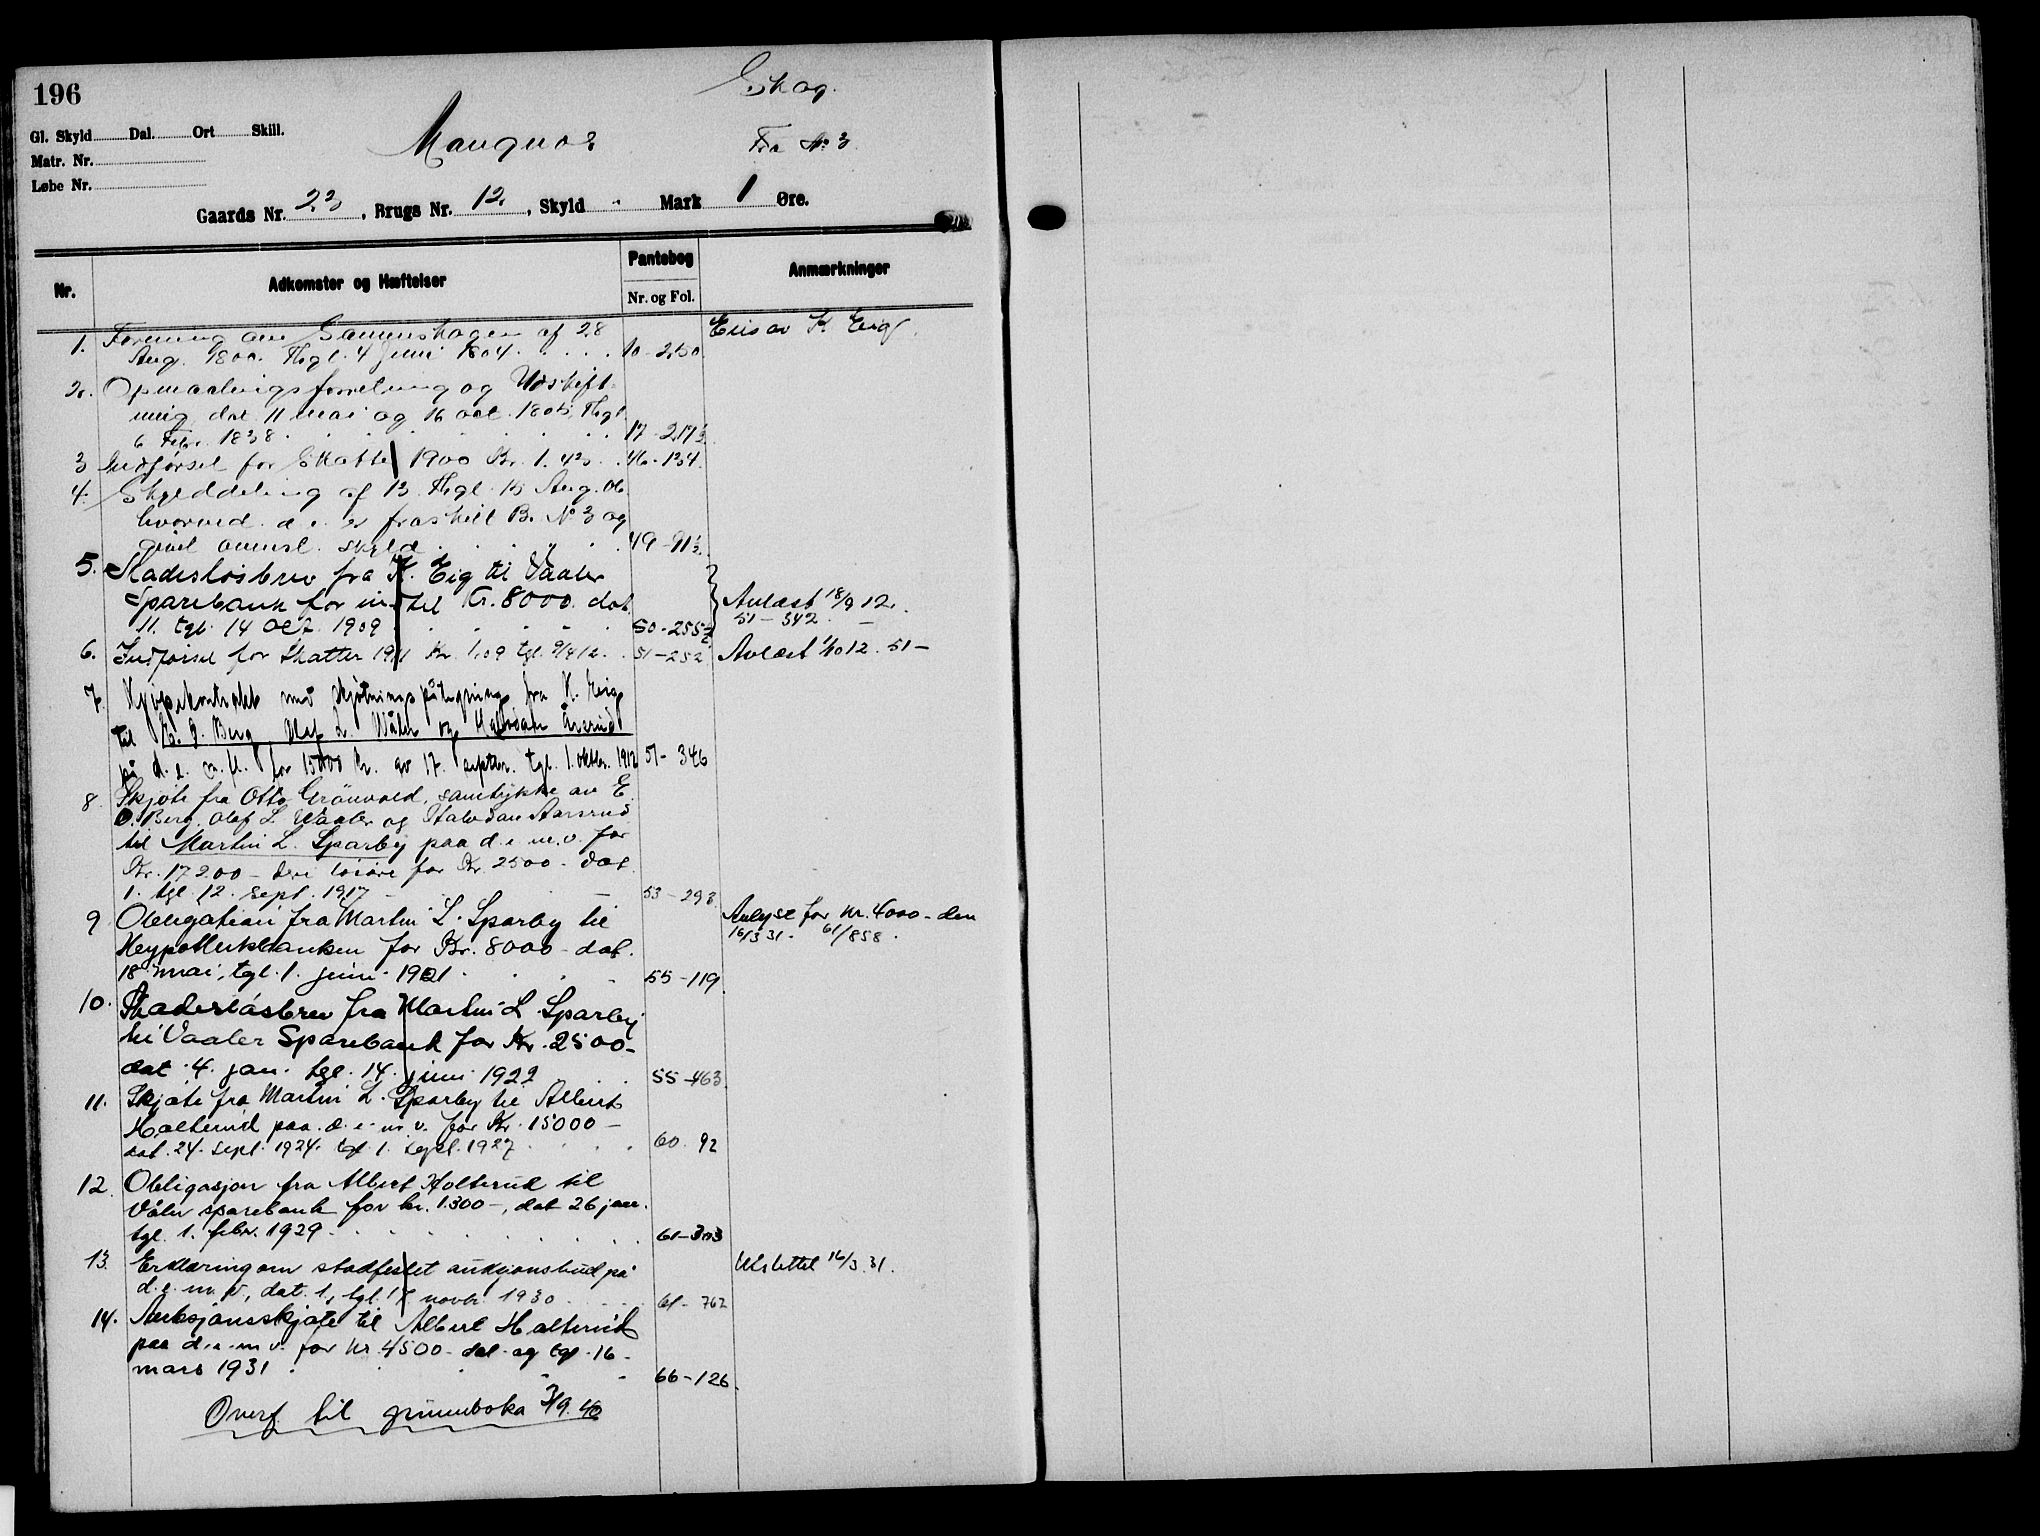 196
Skog.
Gl. Skyld Dal. Ort Skill.
Matr. Nr.
Løbe Nr.
Mangnos
Fra № 3.
Gaards Nr. 23, Brugs Nr. 12, Skyld - Mark 1 Øre.
Nr. Adkomster og Hæftelser Pantebog Nr. og Fol. Anmærkninger
1. Forening om Samenskogen af 28 Eies av K. Eig.
Aug. 1800. Thgl. 4 Juni 1804 10-250
2. Opmaalingsforretning og Udskift-
ning dat. 11 mai og 16 oct. 1805, Thgl.
6 Febr. 1838. 17-217½
3 Indførsel for Skatte 1900 Kr. 1.43 46-134.
4. Skylddeling af 13 Thgl. 15 Aug. 06
hvorved d. e. er fraskilt B. № 3 og
givet anmst. skyld 49-91½
5. Skadesløsbrev fra K. Eig til Vaaler
Sparebank for indtil Kr. 8000. dat. Avlæst 18/9 12.
11. tgl. 14 Okt. 1909 50-255½ 51-342.
6. Indførsel for Skatter 1911 Kr. 1,09 tgl. 9/4 12. 51-252 Avlæst 1/10 12. 51-
7. Kjøpekontrakt med skjøtningspåtegning fra K. Eig
til E. O. Berg, Olaf L. Wåler og Halvdan Årsrud
på d. e. m. fl. for 15000 Kr. av 17. septbr. tgl. 1. oktbr. 1912 51-346
8. Skjøte fra Otto Grönvold, samtykke av E.
O. Berg, Olaf L. Waaler og Halvdan Aarsrud
til Martin L. Sparby paa d. e. m. v. for
Kr. 17200- derav løsøre for Kr. 2500- dat.
1. tgl. 12. sept. 1917 53-298.
9 Obligation fra Martin L. Sparby til Avlyst for kr. 4000- den
Heypothekbanken for Kr. 8000- dat. 16/3 31. 61/858.
18 mai, tgl. 1. juni 1921 55-119.
10. Skadesløsbrev fra Martin L. Sparby
til Vaaler Sparebank for Kr. 2500-
dat. 4. jan. tgl. 14. juni 1922 55-463.
11. Skjøte fra Martin L. Sparby til Albert
Holterud paa d. e. m. v. for Kr. 15000-
dat. 24. sept. 1924. tgl. 1. sept. 1927 60-92
12. Obligasjon fra Albert Holterud til
Våler sparebank for kr. 1.300-, dat 26 jan.
tgl. 1. febr. 1929. 61-303
13. Erklæring om stadfestet auksjonsbud på Utslettet 16/3.31.
d. e. m. v., dat. 1., tgl. 17. novbr. 1930 61-762
14. Auksjonsskjøte til Albert Holterud
paa d. e. m. v. for kr. 4500- dat. og tgl. 16.
mars 1931 66-126.
Overf. til grunnboka 3/9.40